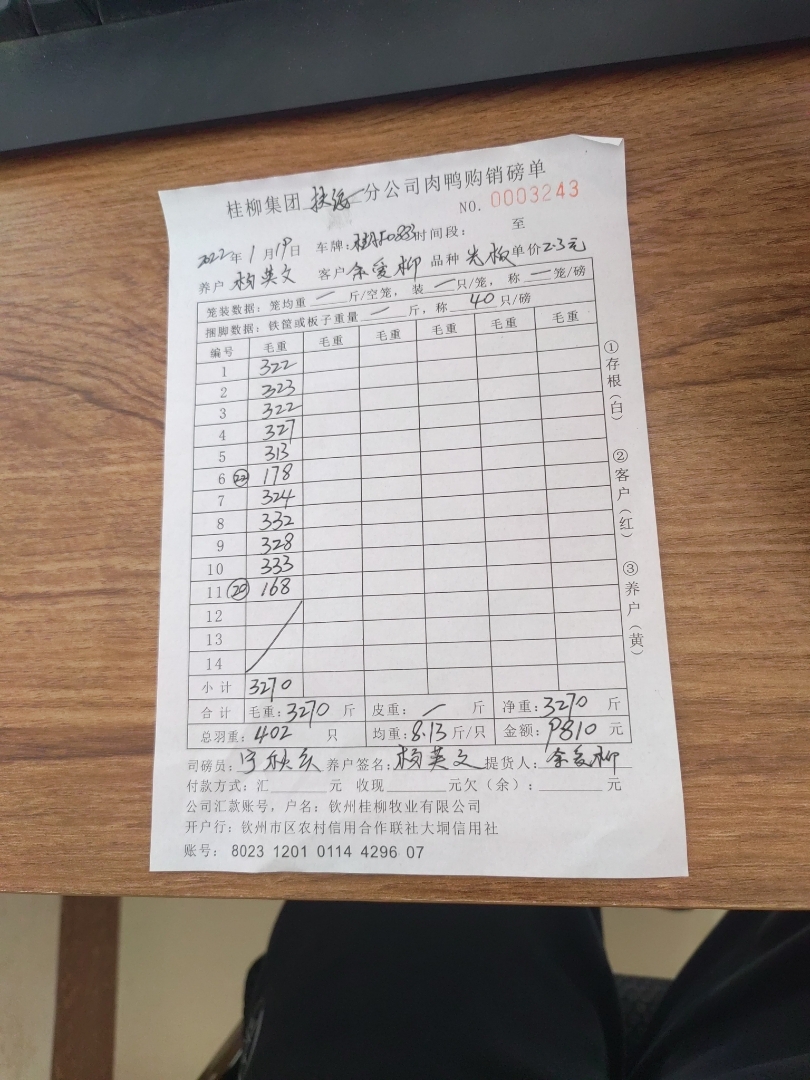 桂柳集团 扶绥 分公司肉鸭购销磅单
NO. 0003243
2022年1月19日 车牌: 时间段: 至
养户 杨英文 客户 余爱柳 品种 光板 单价2.3元
笼装数据:笼均重 一 斤/空笼,装 一 只/笼,称 一 笼/磅
捆脚数据:铁筐或板子重量 一 斤,称 40 只/磅
编号 毛重 毛重 毛重 毛重 毛重 毛重
1 322
2 323
3 322
4 327
5 313
6 (22) 178
7 324
8 332
9 328
10 333
11 (20) 168
12
13
14
小计 3270
合计 毛重:3270 斤 皮重: 一 斤 净重:3270 斤
总羽重:402 只 均重:8.13斤/只 金额:9810 元
司磅员: 养户签名:杨英文 提货人:余爱柳
付款方式:汇 元 收现 元欠(余): 元
公司汇款账号,户名:钦州桂柳牧业有限公司
开户行:钦州市区农村信用合作联社大垌信用社
账号: 8023 1201 0114 4296 07
①存根(白)
②客户(红)
③养户(黄)